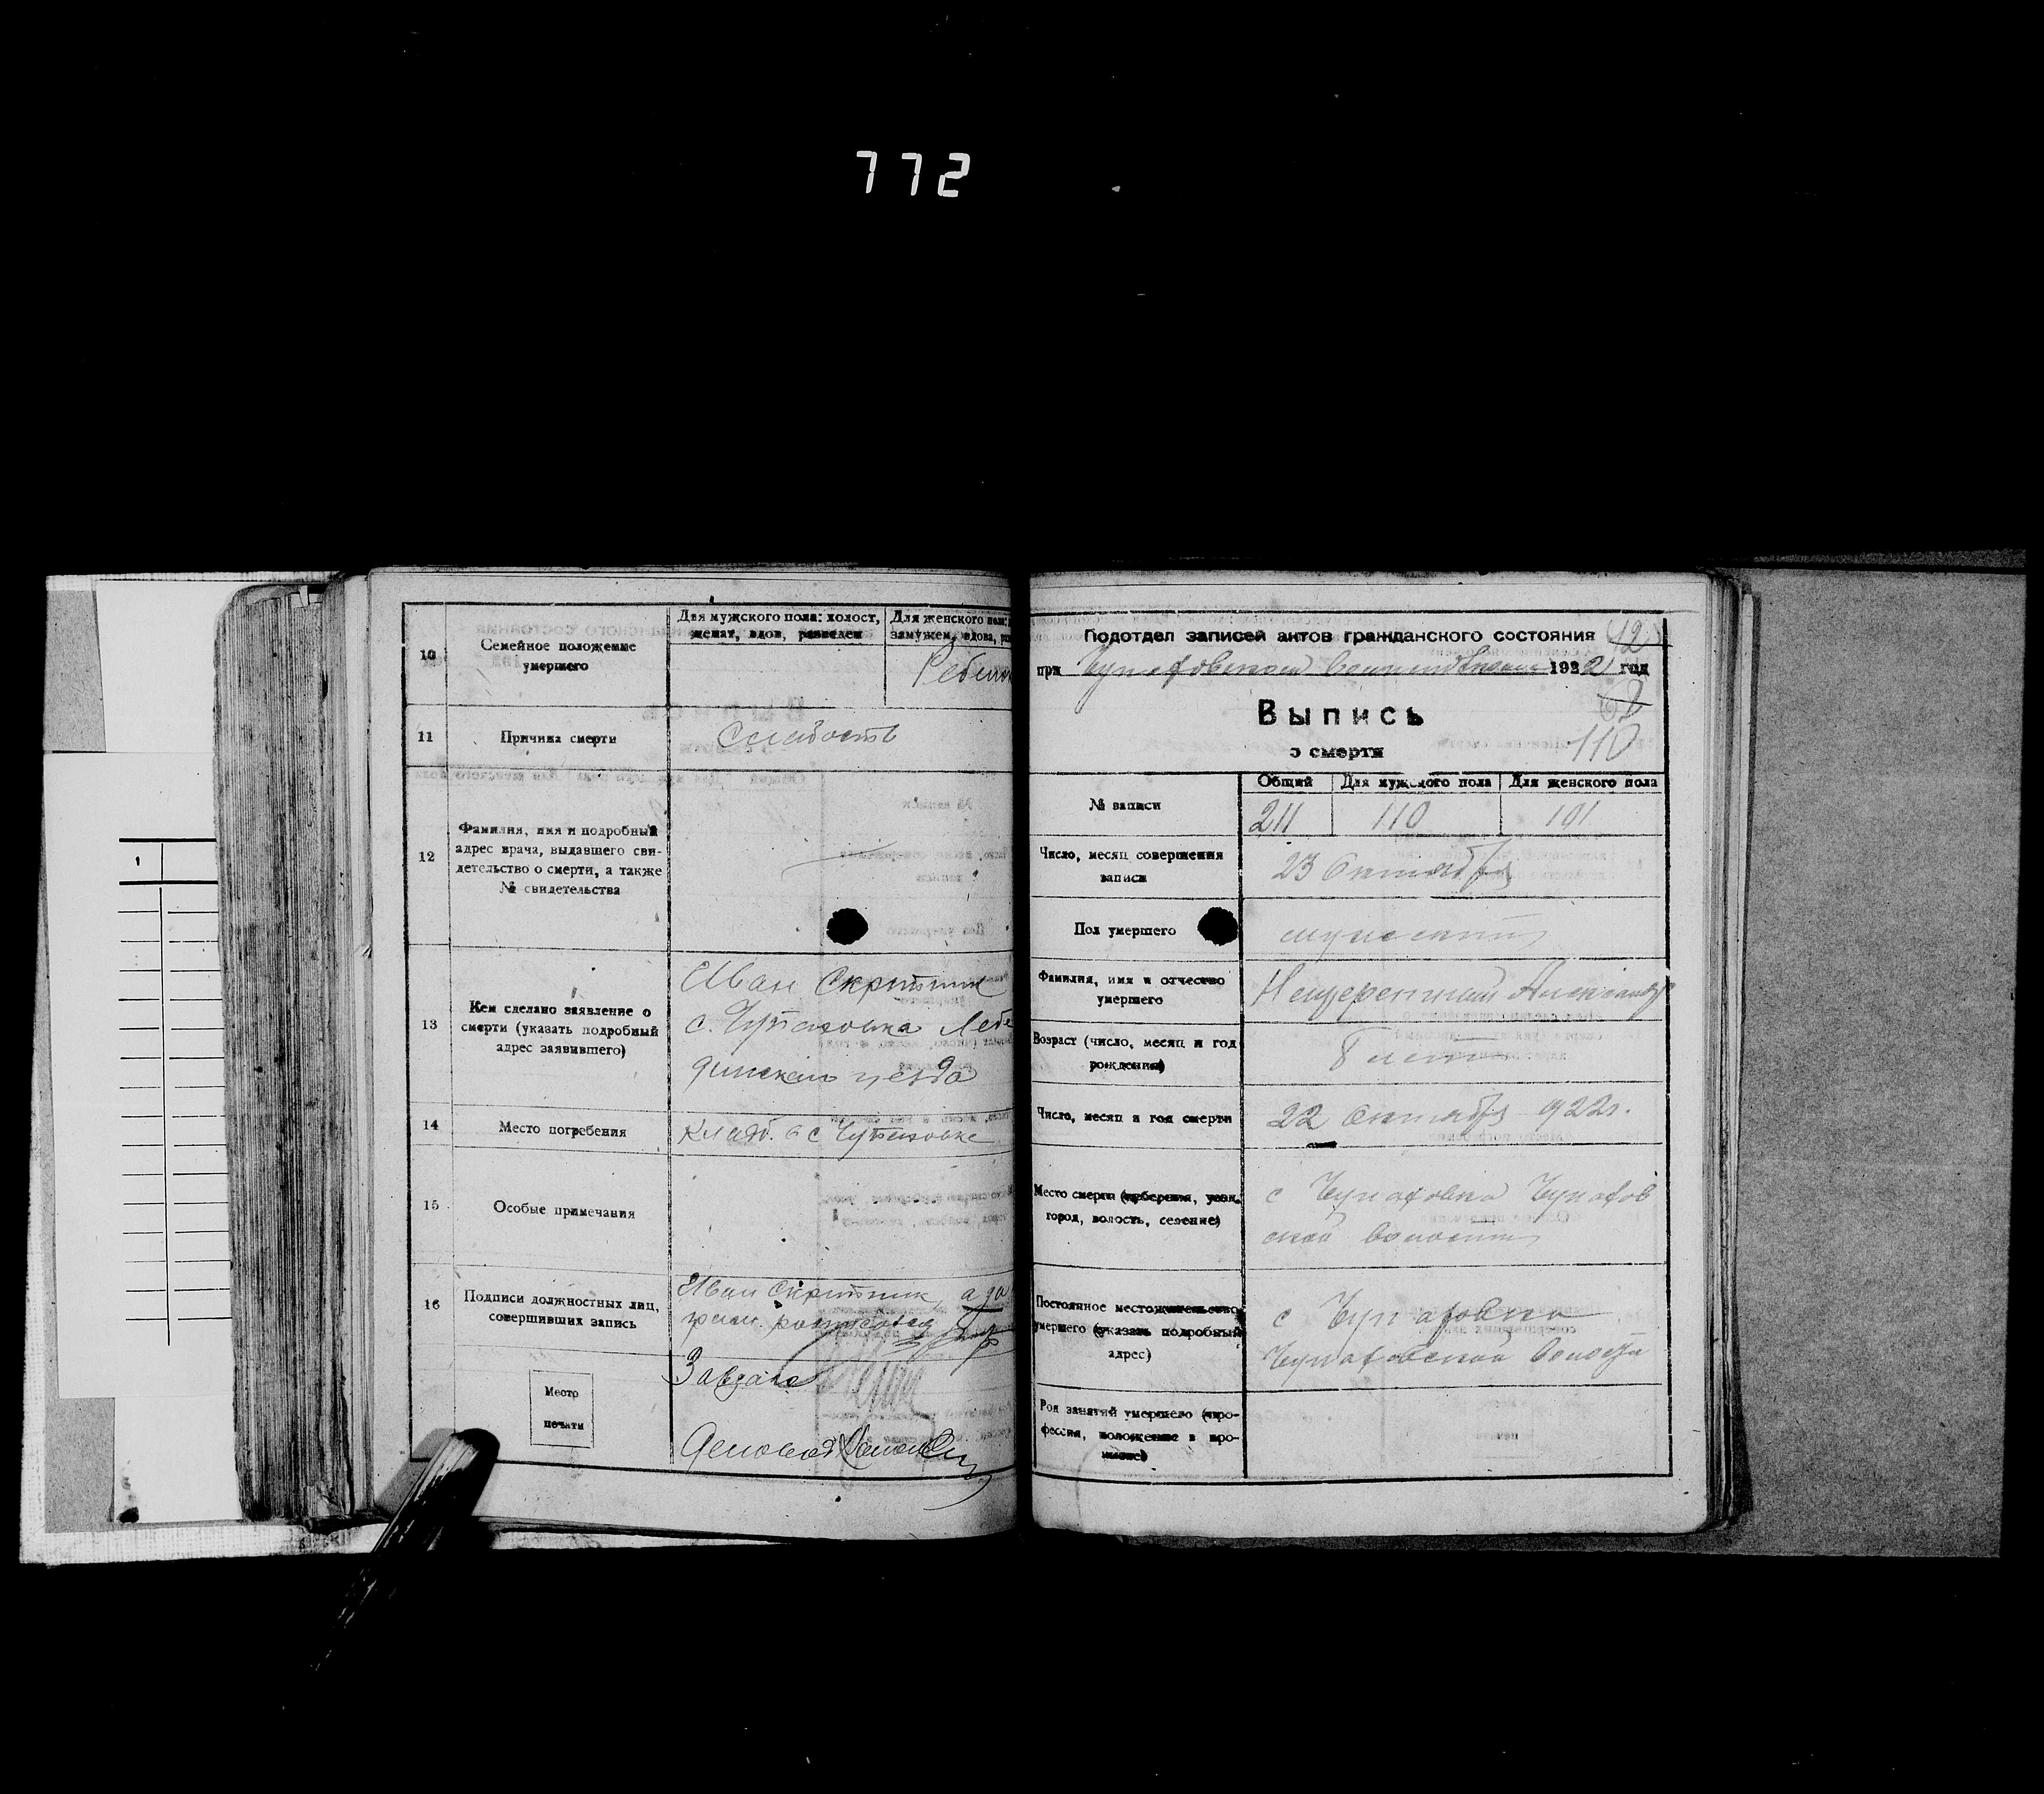 772
10
Семейное положение
умершего
Для мужского пола: холост,
женат, вдов, разведен
Для женского пола:
замужем, вдова,
Ребенок
11
Причина смерти
Слабость
12
Фамилия, имя и подробный
адрес врача, выдавшего сви-
детельство о смерти, а также
№ свидетельства
13
Кем сделано заявление о
смерти (указать подробный
адрес заявившего)
Иван Скрыпник
с. Чупаховка Лебе
динскаго уезда
14
Место погребения
Кладб. в с Чупаховке
15
Особые примечания
16
Подписи должностных лиц,
совершивших запись
Иван Скрыпник, а за
Завзагс
Место
печати
Подотдел записей актов гражданского состояния
12
при Чупаховском 1922 год
Выпись
о смерти
110
№ записи
Общий
Для мужского пола
Для женского пола
211
110
101
Число, месяц совершения
записи
23 Октября
Пол умершего
мужской
Фамилия, имя и отчество
умершего
Нещеретний Александр
Возраст (число, месяц и год
рождения)
8 лет
Число, месяц и год смерти
22 Октября 1922г.
Место смерти (губерния, уезд,
город, волость, селение)
с Чупаховка Чупахов
ской волости
Постоянное местожительство
умершего (указать подробный
адрес)
с Чупаховка
Чупаховской волости
Род занятий умершего (про-
фессия, положение в про-
мысле)
1